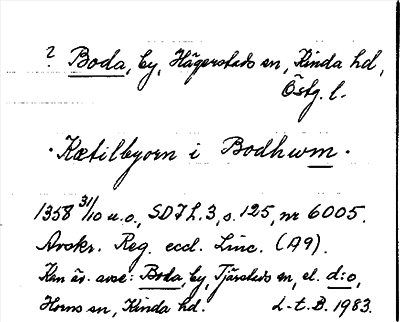 ? Boda, by, Hägerstads sn, Kinda hd,
Östg. l.
· Kætilbyorn i Bodhwm ·
1358 31/10 u.o., SDFL.3, s. 125, nr 6005.
Avskr. Reg. eccl. Linc. (A9).
Kan äv. avse: Boda, by, Tjärstads sn, el. d:o,
Horns sn, Kinda hd. L-t. B. 1983.